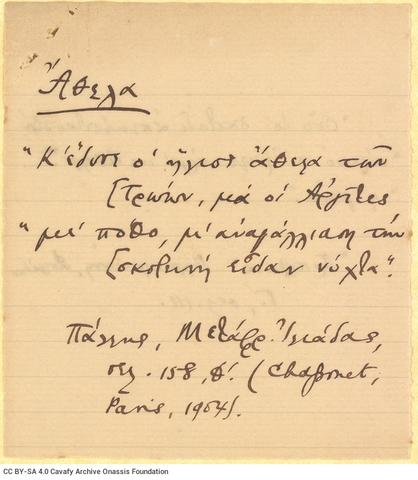 Ἄθελα
"Κ' ἔδυσε ὁ ἥλιος ἄθελα τῶν
Τρώων, μὰ οἱ Ἀργῖτες
"μὲ πόθο, μ' ἀναγάλλιαση τὴν
σκοτεινὴ εἶδαν νύχτα".
Πάλλης, Μετάφρ. Ἰλιάδας,
σελ. 158, Θ'. (Chaponet,
Paris, 1904).
CC BY-SA 4.0 Cavafy Archive Onassis Foundation